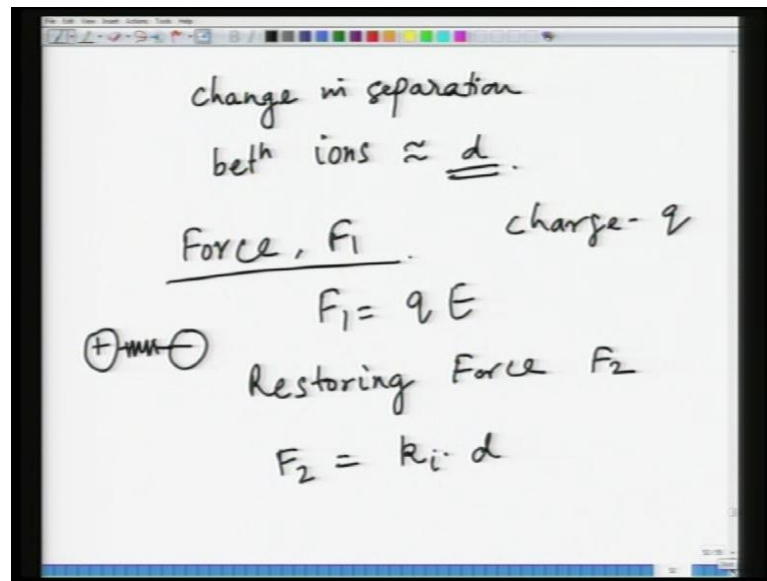 File Edit View Insert Actions Tools Help
change in separation
betn ions ≈ d.
Force, F1. charge- q
F1 = q E
+ -
Restoring Force F2
F2 = ki. d